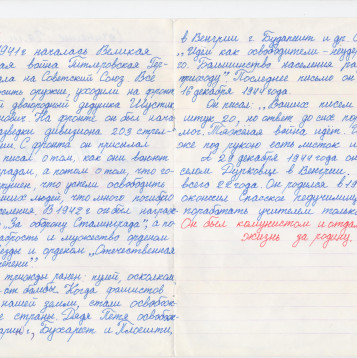 1941 г началась Великая
ая война Гитлеровская Ге-
ала на Советский Союз. Все
оить оружие, уходили на фронт
й двоюродный дедушка Шустик
нович. На фронте он был нача-
зведки дивизиона 203 стрел-
и. С фронта он присылал
писал о том, как они воюют
градом, а потом о том, что го-
рушен, что успели освободить
ных людей, что много погибло
селения. В 1942 г он был награж-
„За оборону Сталинграда", а по-
рабрость и мужество орденом
езды и орденом „Отечественная
епени".
трижды ранен: пулей, осколком,
от бомбы. Когда фашистов
нашей земли, стали освобож-
е страны. Дядя Петя освобож-
арию г, Бухарест и Плоешти,
в Венгрии г. Будапешт и др. С
„Идём как освободители - неудер
го. Большинство населения ра
природу". Последнее письмо он
16 декабря 1944 года.
Он писал: „Ваших писем
штук 20, но ответ до сих пор
мог. Тяжёлая война идёт.
же под рукою есть листок и
а 29 декабря 1944 года он
селом Дунковце в Венгрии.
всего 22 года. Он родился в 19
окончил Спасское педучилищ
поработать учителем только
Он был комунистом и отдал
жизнь за родину.